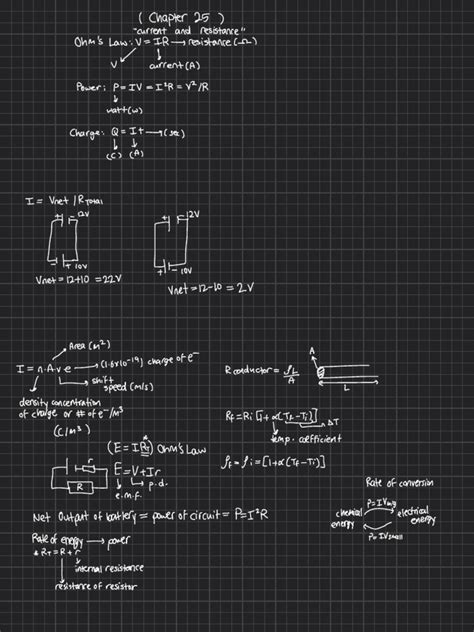 (Chapter 25)
"current and resistance"
Ohm's Law: V = IR → resistance (Ω)
V current (A)
Power: P = IV = I²R = V²/R
watt (w)
Charge: Q = It → (sec)
(C) (A)
I = Vnet / RTotal
12V
10V
Vnet = 12+10 = 22V
12V
10V
Vnet = 12-10 = 2V
Area (m²)
I = n.A.v e → (1.6x10⁻¹⁹) charge of e⁻
shift speed (m/s)
density concentration
of charge or # of e⁻/m³
(C/m³)
R conductor = ρL/A
A
L
Rf = Ri [1+α(Tf-Ti)]
ΔT
temp. coefficient
ρf = ρi = [1+α(Tf-Ti)]
(E = IRT) Ohm's Law
E = V + Ir
p.d.
e.m.f.
r
R
Net Output of battery = power of circuit = P = I²R
Rate of energy → power
* RT = R + r
internal resistance
resistance of resistor
Rate of conversion
chemical energy
electrical energy